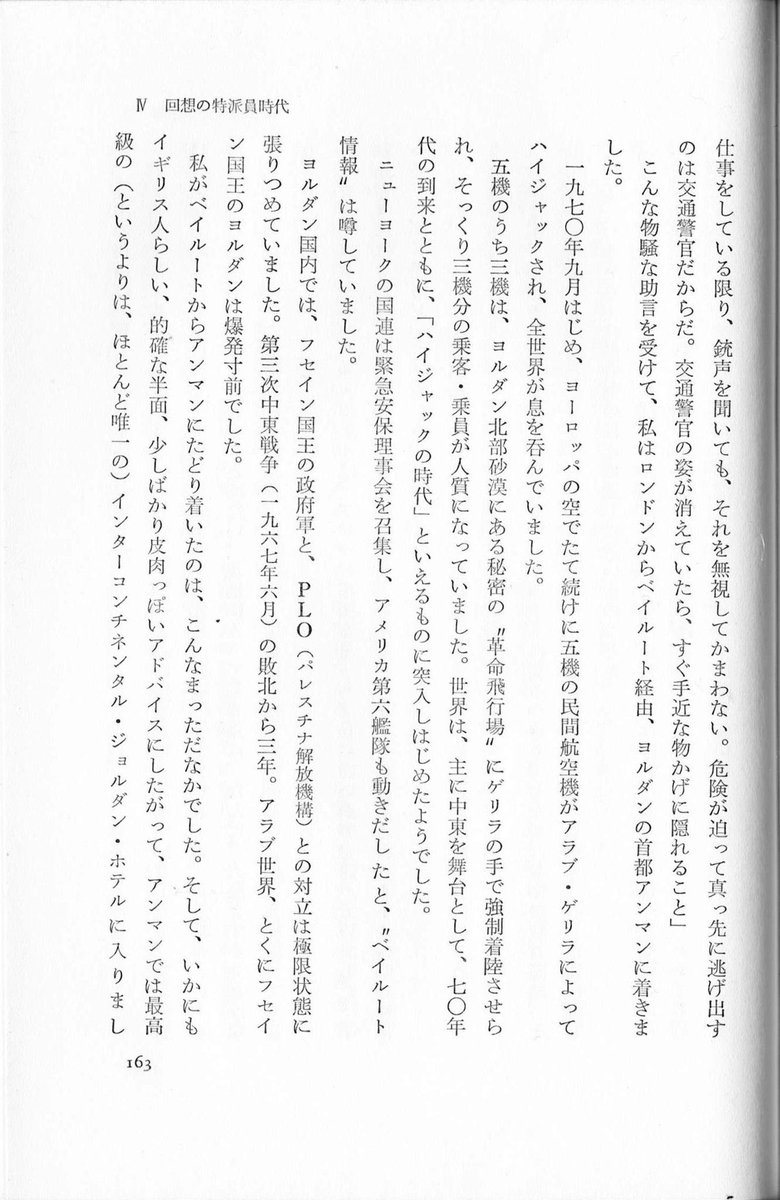 仕事をしている限り、銃声を聞いても、それを無視してかまわない。危険が迫って真っ先に逃げ出す
のは交通警官だからだ。交通警官の姿が消えていたら、すぐ手近な物かげに隠れること」
こんな物騒な助言を受けて、私はロンドンからベイルート経由、ヨルダンの首都アンマンに着きま
した。
一九七〇年九月はじめ、ヨーロッパの空でたて続けに五機の民間航空機がアラブ・ゲリラによって
ハイジャックされ、全世界が息を呑んでいました。
五機のうち三機は、ヨルダン北部砂漠にある秘密の〝革命飛行場〟にゲリラの手で強制着陸させら
れ、そっくり三機分の乗客・乗員が人質になっていました。世界は、主に中東を舞台として、七〇年
代の到来とともに、「ハイジャックの時代」といえるものに突入しはじめたようでした。
ニューヨークの国連は緊急安保理事会を召集し、アメリカ第六艦隊も動きだしたと、〝ベイルート
情報〟は噂していました。
ヨルダン国内では、フセイン国王の政府軍と、PLO（パレスチナ解放機構）との対立は極限状態に
張りつめていました。第三次中東戦争（一九六七年六月）の敗北から三年。アラブ世界、とくにフセイ
ン国王のヨルダンは爆発寸前でした。
私がベイルートからアンマンにたどり着いたのは、こんなまっただなかでした。そして、いかにも
イギリス人らしい、的確な半面、少しばかり皮肉っぽいアドバイスにしたがって、アンマンでは最高
級の（というよりは、ほとんど唯一の）インターコンチネンタル・ジョルダン・ホテルに入りまし
Ⅳ 回想の特派員時代
163